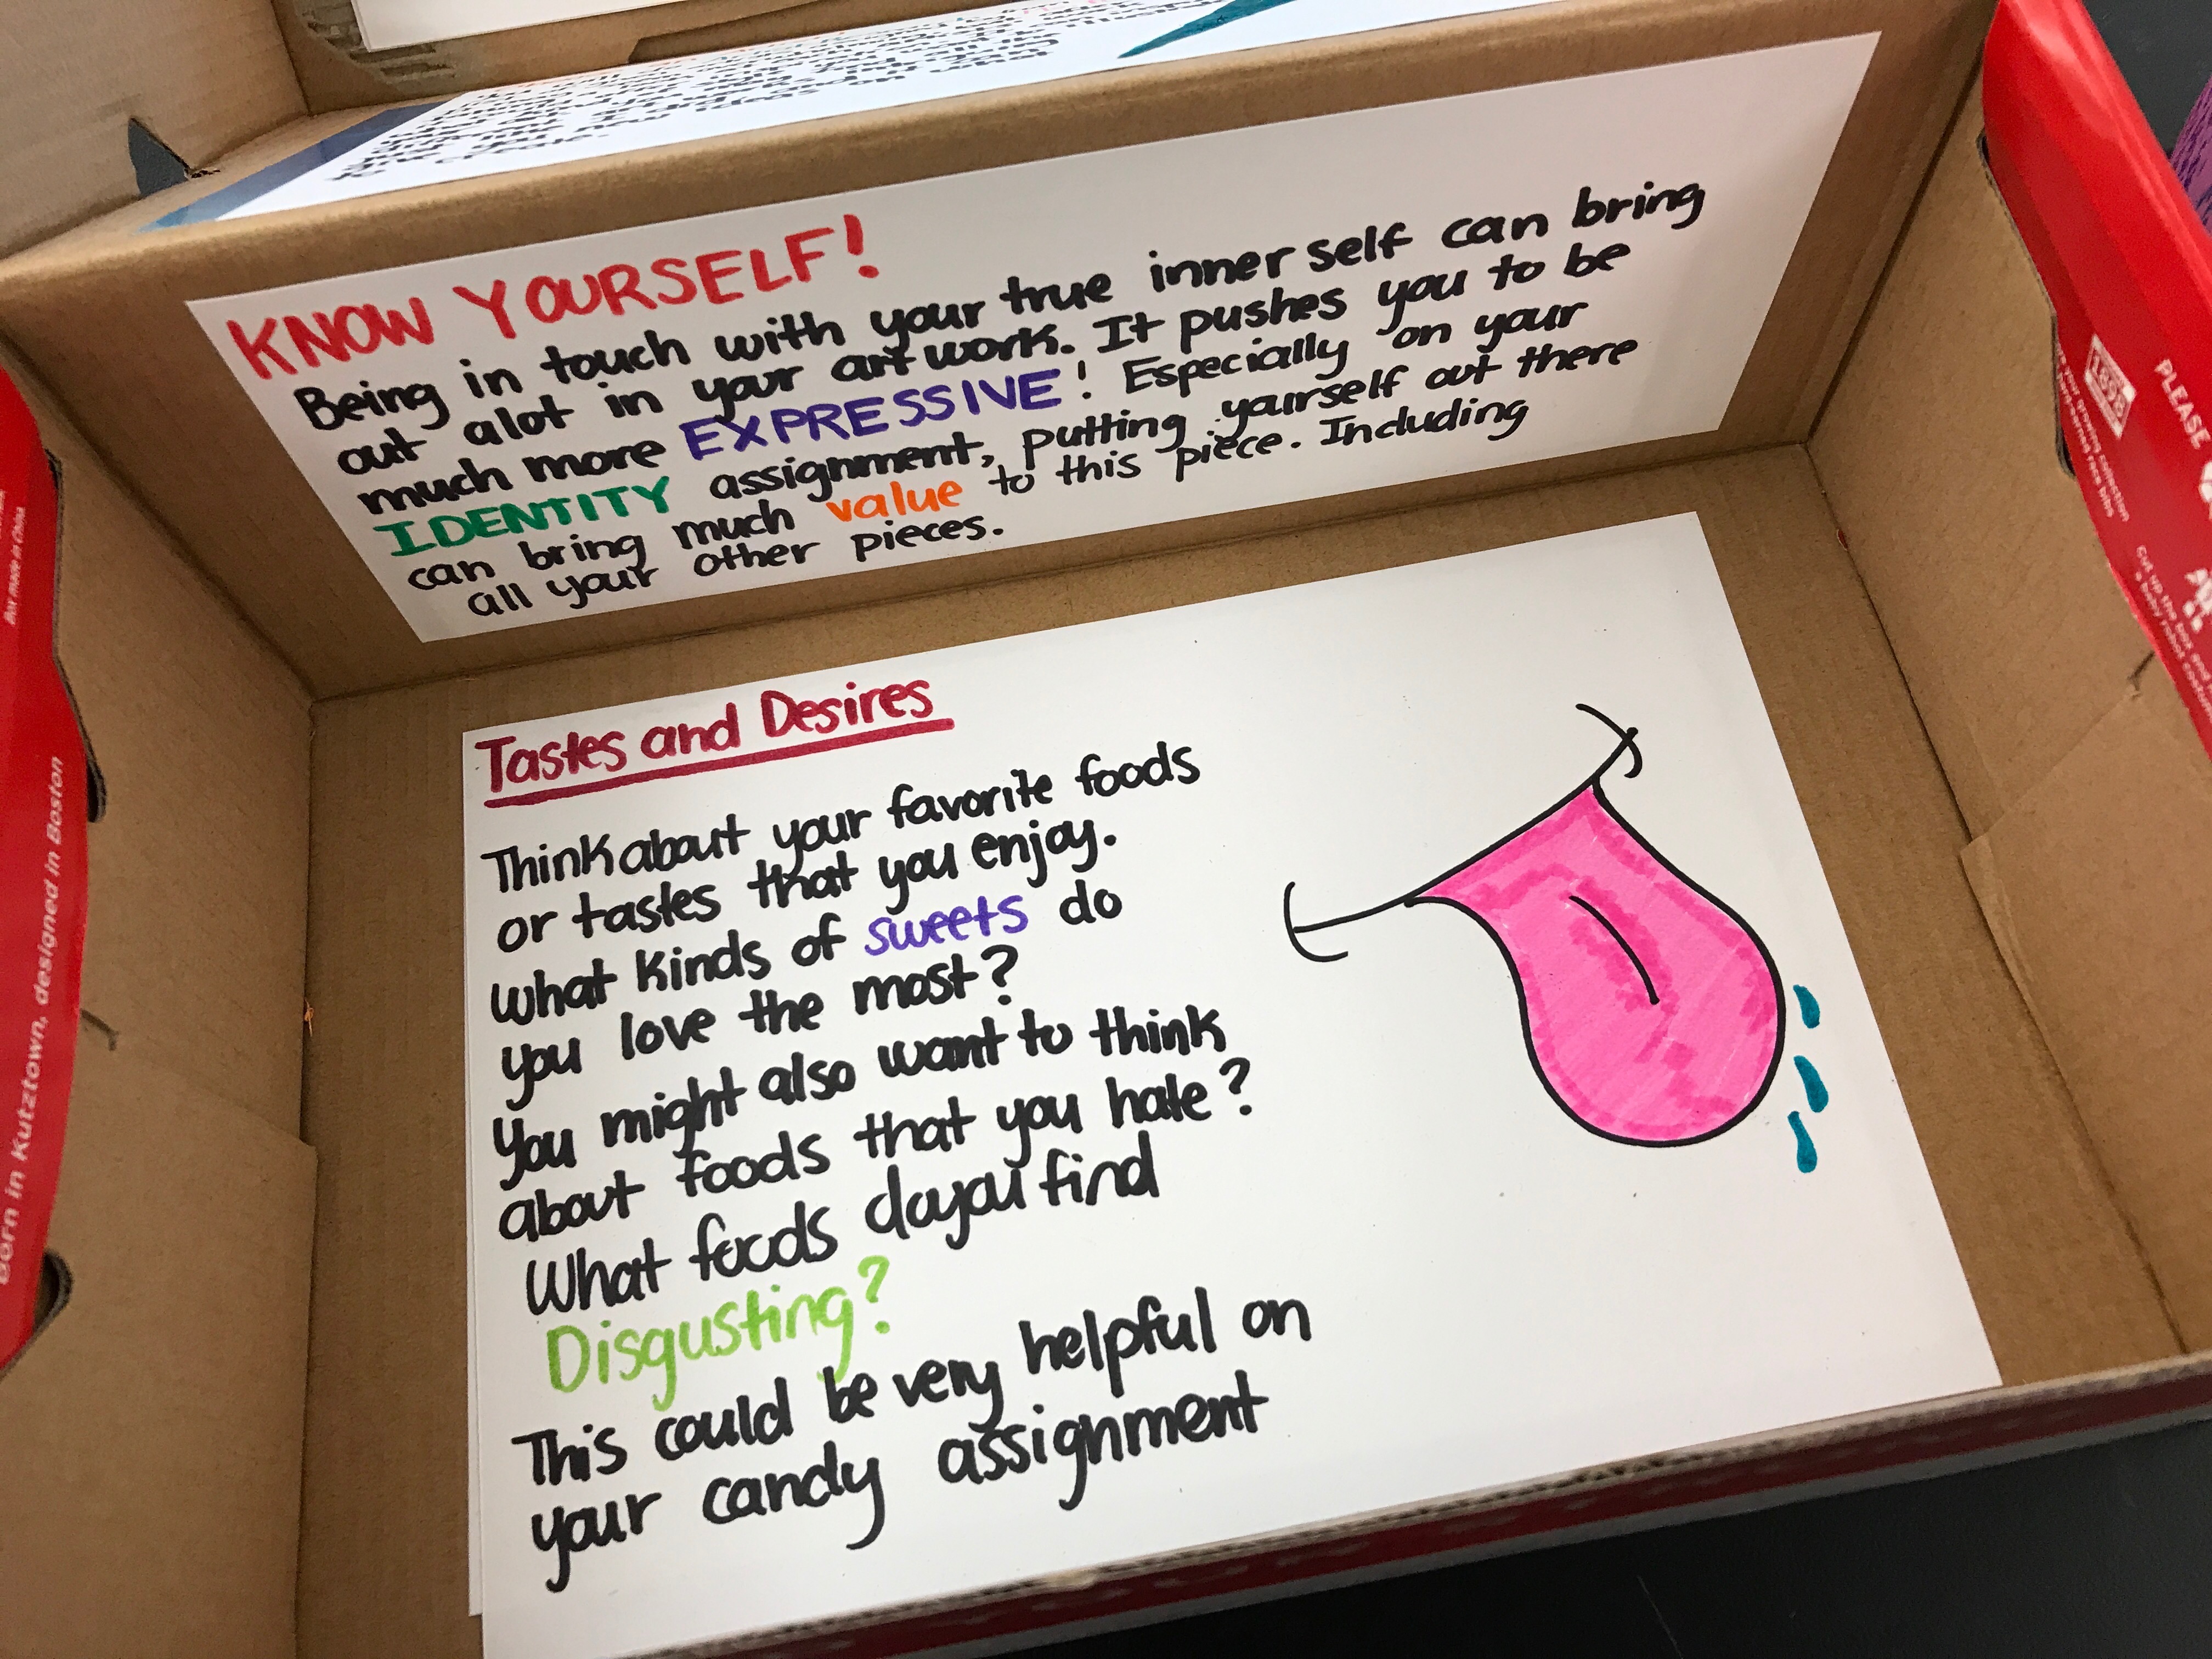 KNOW YOURSELF!
Being in touch with your true inner self can bring
out alot in your artwork. It pushes you to be
much more EXPRESSIVE! Especially on your
IDENTITY assignment, putting yourself out there
can bring much value to this piece. Including
all your other pieces.
Tastes and Desires
Think about your favorite foods
or tastes that you enjoy.
What kinds of sweets do
you love the most?
You might also want to think
about foods that you hate?
What foods do you find
Disgusting?
This could be very helpful on
your candy assignment
Born in Kutztown, designed in Boston
PLEASE